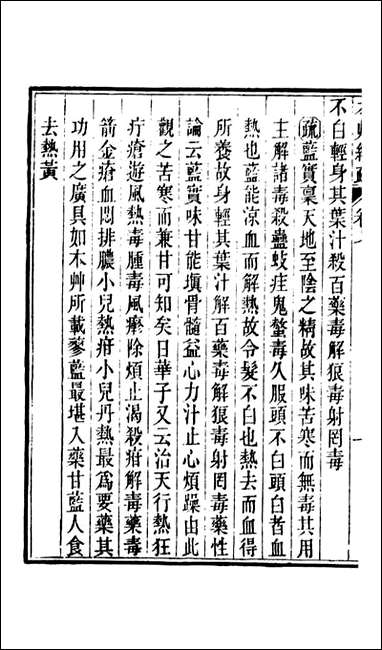 不白輕身其葉汁殺百藥毒解狼毒射罔毒
疏藍實稟天地至陰之精故其味苦寒而無毒其用
主解諸毒殺蠱蚑疰鬼螫毒久服頭不白頭白者血
熱也藍能涼血而解熱故令髮不白也熱去而血得
所養故身輕其葉汁解百藥毒解狼毒射罔毒藥性
論云藍實味甘能填骨髓益心力汁止心煩躁由此
觀之苦寒而兼甘可知矣日華子又云治天行熱狂
疔瘡遊風熱毒腫毒風𤺋除煩止渴殺疳解毒藥毒
箭金瘡血悶排膿小兒熱疳小兒丹熱最爲要藥其
功用之廣具如本艸所載蓼藍最堪入藥甘藍人食
去熱黃